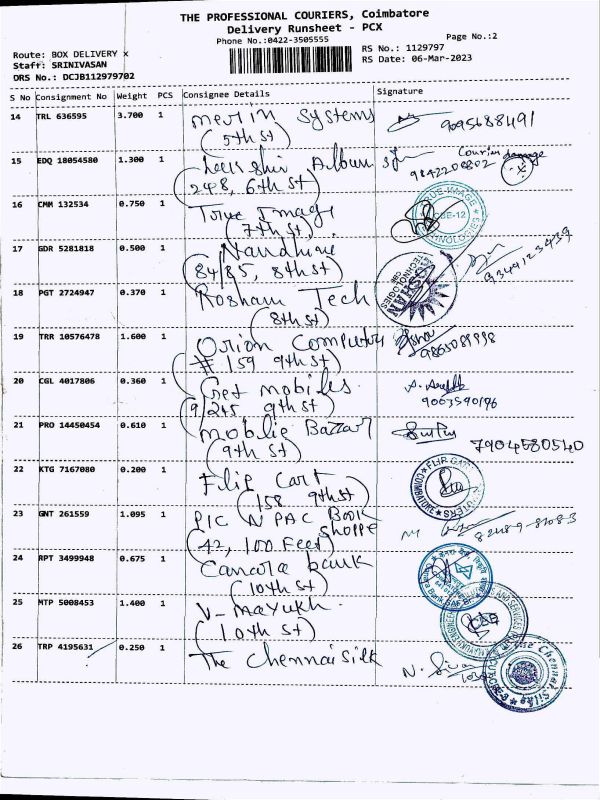 THE PROFESSIONAL COURIERS, Coimbatore
Delivery Runsheet - PCX
Phone No.:0422-3505555
Page No.:2
Route: BOX DELIVERY x
RS No.: 1129797
Staff: SRINIVASAN
RS Date: 06-Mar-2023
DRS No.: DCJB112979702
S No Consignment No Weight PCS Consignee Details Signature
14 TRL 636595 3.700 1 merlin systems
(5th st)
9095688491
15 EDQ 18054580 1.300 1 Album
248, 6th st)
9842208802 Courier damage
16 CMM 132534 0.750 1 True Image
(7th st)
CBE-12
17 GDR 5281818 0.500 1 Nandhini
84/85, 8th st)
9349123439
18 PGT 2724947 0.370 1 Roshan Tech
(8th st)
ROSHAN TECHNOLOGIES
19 TRR 10576478 1.600 1 Orion Computer
# 159 9th st)
9865089998
20 CGL 4017806 0.360 1 Get mobiles
9/245 9th st)
9003590196
21 PRO 14450454 0.610 1 moblie Bazzar
(9th st)
7904580540
22 KTG 7167080 0.200 1 Flip Cart
(158 9th st)
23 GNT 261559 1.095 1 PIC N PAC Book
Shoppe
(42, 100 Feet)
24 RPT 3499948 0.675 1 Canara bank
(10th st)
25 MTP 5008453 1.400 1 V-mayukh
(10th st)
26 TRP 4195631 0.250 1 The Chennai silk
N. Siva
The Chennai Silks